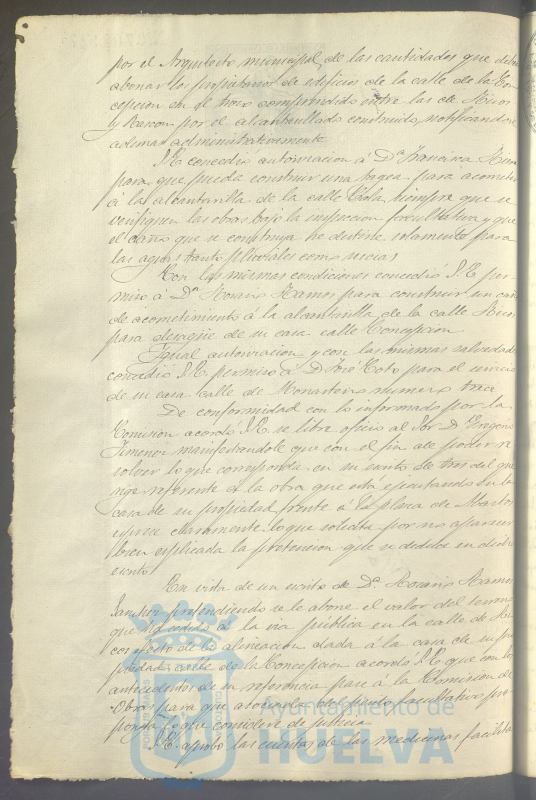 por el Arquitecto municipal, de las cantidades que deben
abonar los propietarios de edificios de la calle de la Con
cepcion en el trozo comprendido entre las de
y Rascon por el alcantarillado construido, notificandose
ademas administrativamente.
S.E. concedió autorizacion á Dª Francisca
para que pueda construir una atagea para acometer
á la alcantarilla de la calle siempre que se
verifiquen las obras bajo la inspeccion facultativa y que
el caño que se construya se destine solamente para
las aguas tanto pluviales como sucias.
Con las mismas condiciones concedió S.E. per
miso á Dª Rosario Ramos para construir un caño
de acometimiento á la alcantarilla de la calle
para desagüe de su casa calle Concepcion.
Igual autorizacion y con las mismas salvedades
concedió S.E. permiso á D. José Toto para el servicio
de su casa calle de Monasterio numero trece
De conformidad con lo informado por la
Comision acordó S.E. se libre oficio al Sor. D. Eugenio
Jimenez manifestandole que con el fin de poder re
solver lo que corresponda en su escrito de tres del que
rige referente á la obra que está ejecutando en la
casa de su propiedad frente á la plaza de
esprese claramente lo que solicita por no aparecer
bien esplicada la pretencion que se deduce en dicho
escrito.
En vista de un escrito de Dª Rosario Ramos
Sanchez pretendiendo se le abone el valor del terreno
que ha cedido á la via publica en la calle de
con efecto de la alineacion dada á la casa de su pro
piedad calle de la Concepcion acordó S.E. que con los
antecedentes de su referencia pase á la Comision de
Obras para que asociada del perito facultativo pro
ponga lo que considere de justicia.
S.E. aprobó las cuentas de las medicinas facilita
Ayuntamiento de
HUELVA